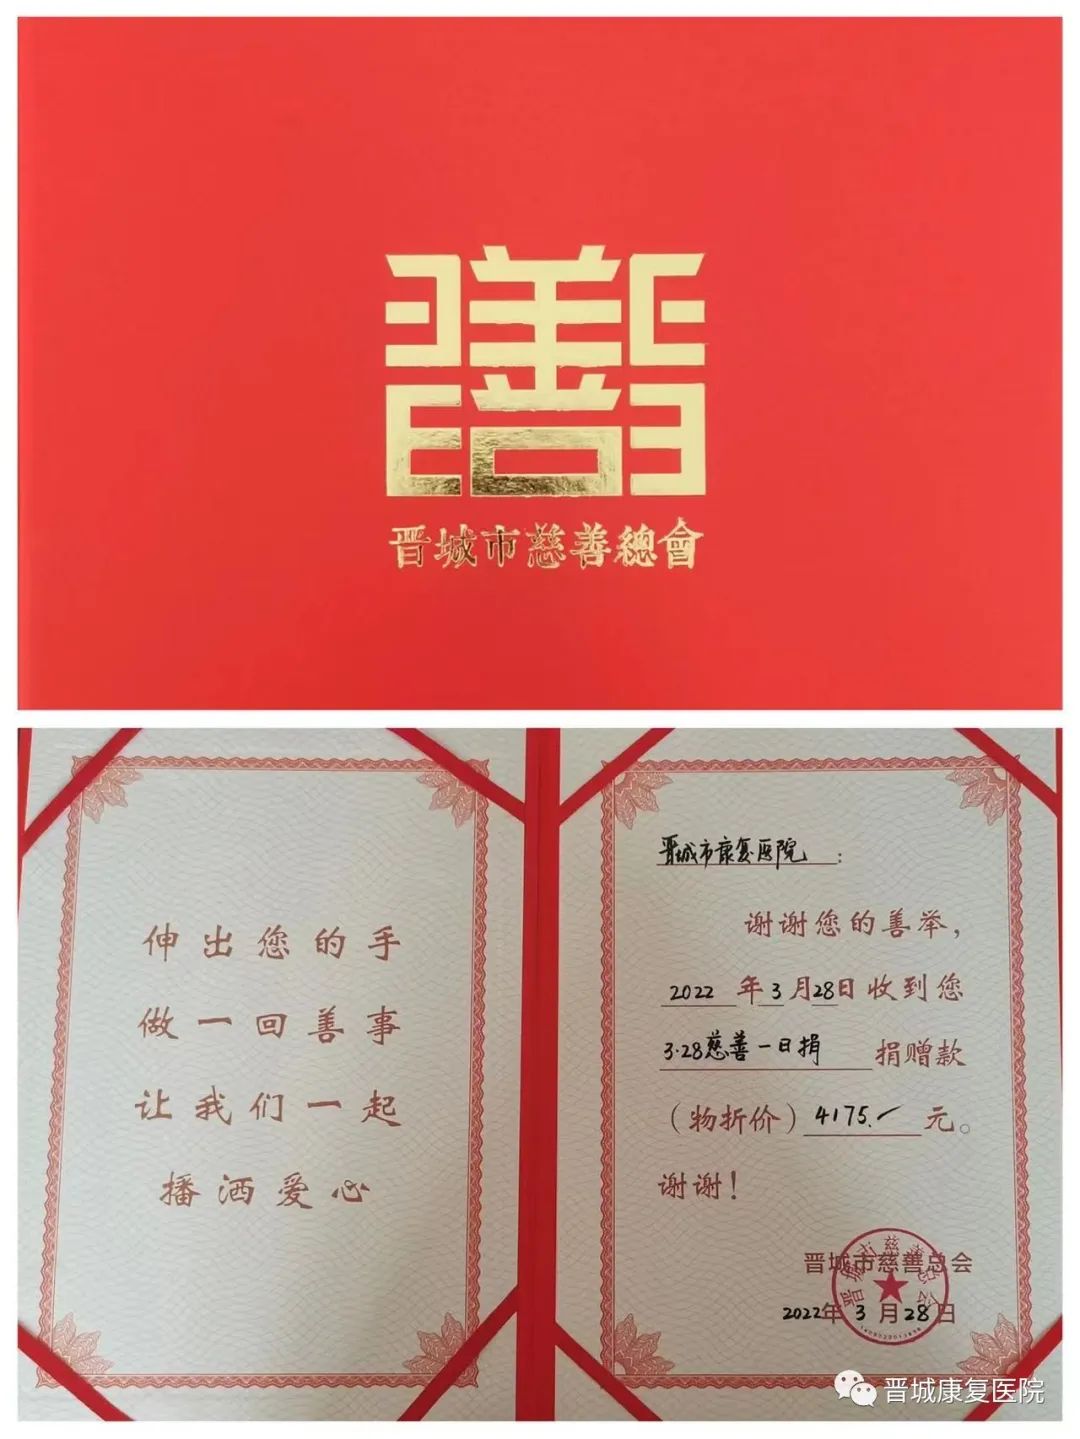 善
晋城市慈善總會
伸出您的手
做一回善事
让我们一起
播洒爱心
晋城市康复医院：
谢谢您的善举，
2022年3月28日收到您
3·28慈善一日捐捐赠款
（物折价）4175.-元。
谢谢！
晋城市慈善总会
2022年3月28日
晋城市慈善总会
晋城康复医院